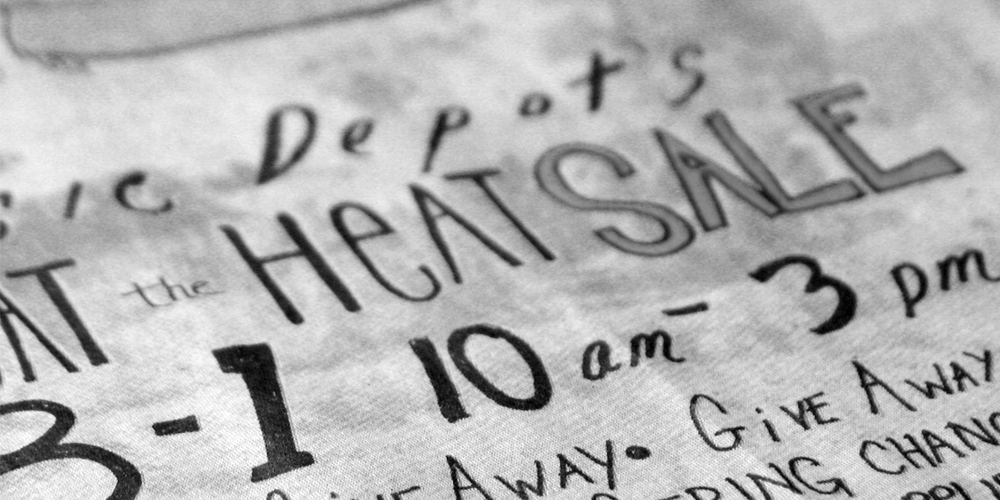 sic Depot's
AT the HeAT SALE
3-1 10 am - 3 pm
GiVE AWAY • GiVE AWAY
CHANG